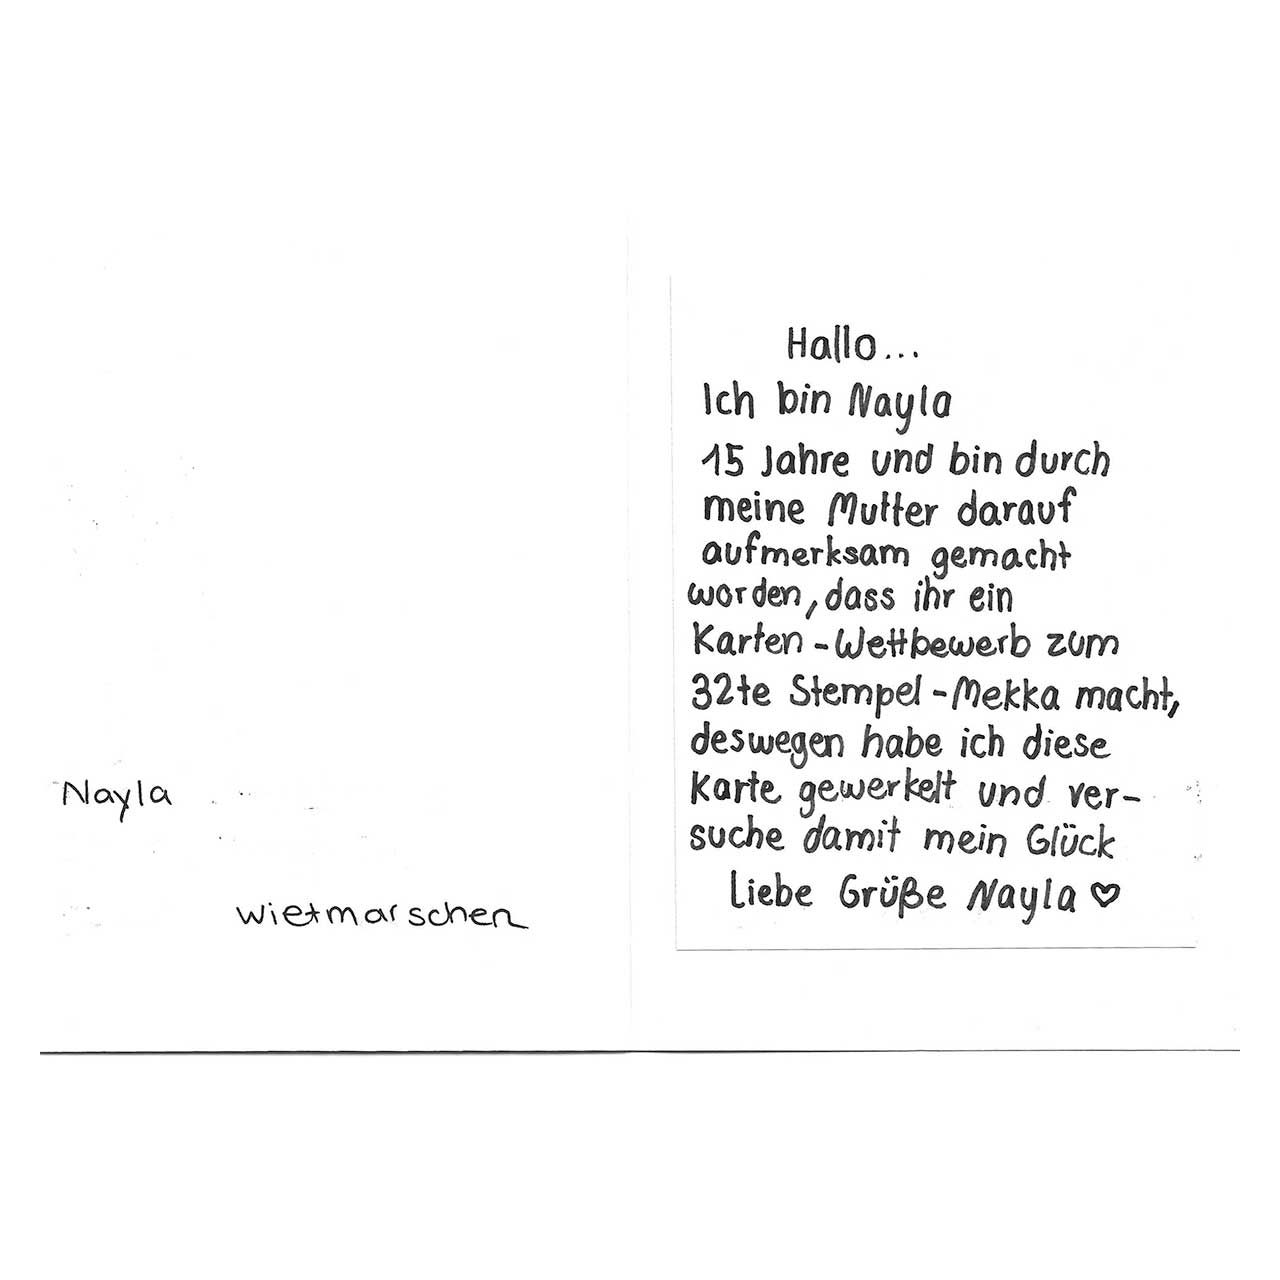 Nayla
wietmarschen
Hallo...
Ich bin Nayla
15 Jahre und bin durch
meine Mutter darauf
aufmerksam gemacht
worden, dass ihr ein
Karten-Wettbewerb zum
32te Stempel-Mekka macht,
deswegen habe ich diese
Karte gewerkelt und ver-
suche damit mein Glück
Liebe Grüße Nayla ♡